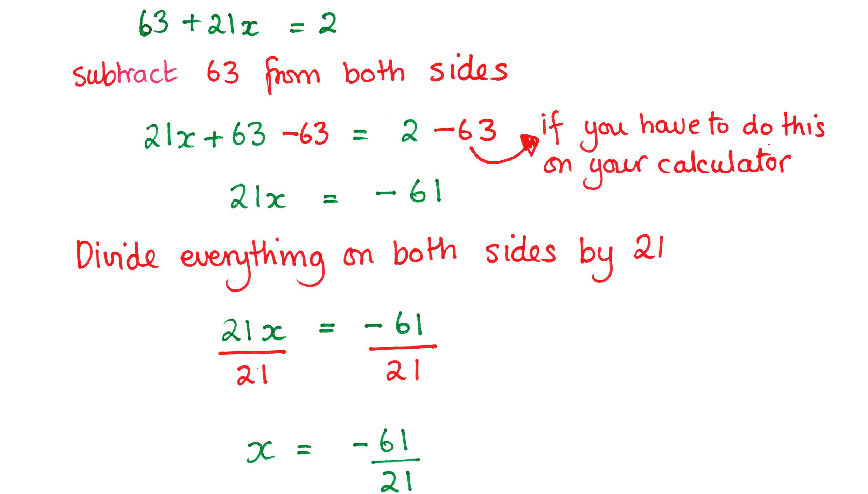 63 + 21x = 2
subtract 63 from both sides
21x + 63 - 63 = 2 - 63 if you have to do this
on your calculator
21x = -61
Divide everything on both sides by 21
21x/21 = -61/21
x = -61/21